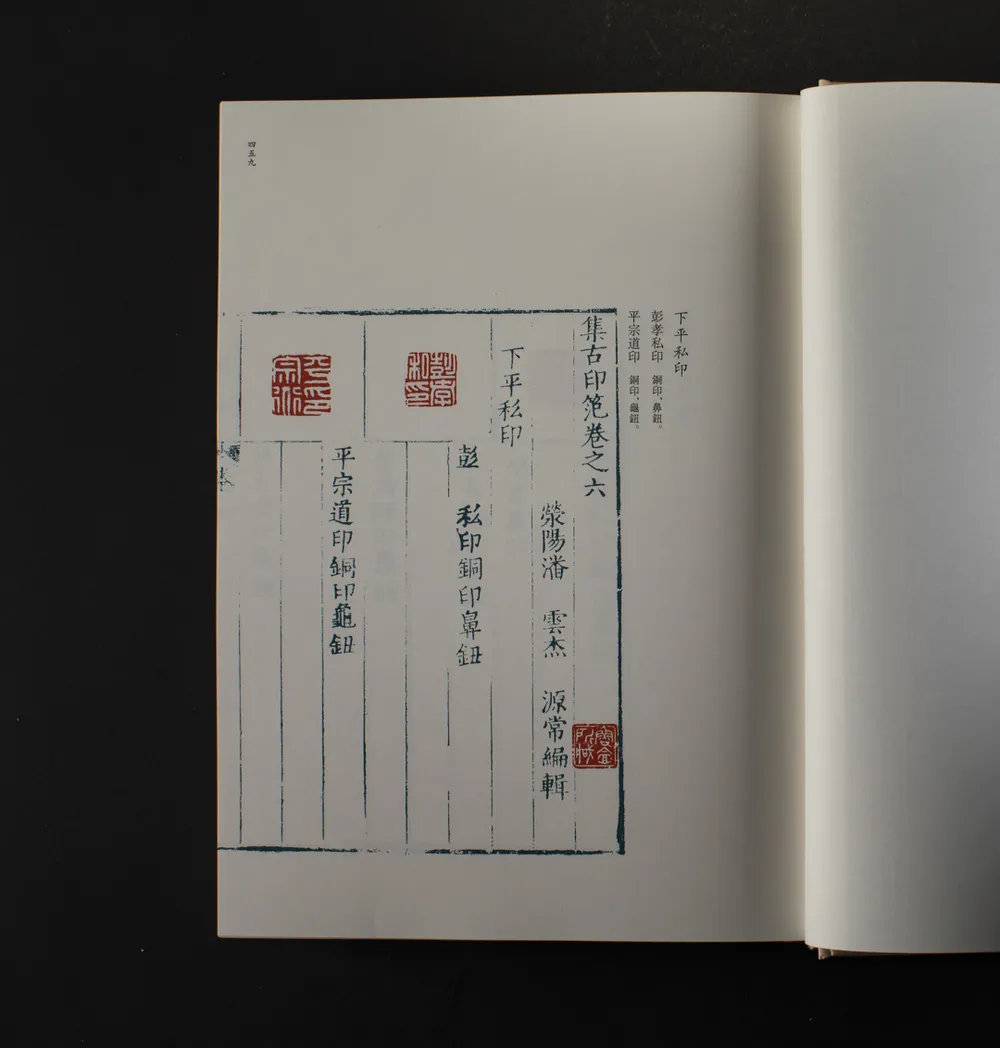 下平私印
彭孝私印　銅印、鼻鈕。
平宗道印　銅印、龜鈕。
集古印笵卷之六
滎陽潘　雲杰　源常編輯
下平私印
彭孝私印
彭　私印銅印鼻鈕
平宗道印
平宗道印銅印龜鈕
四五九